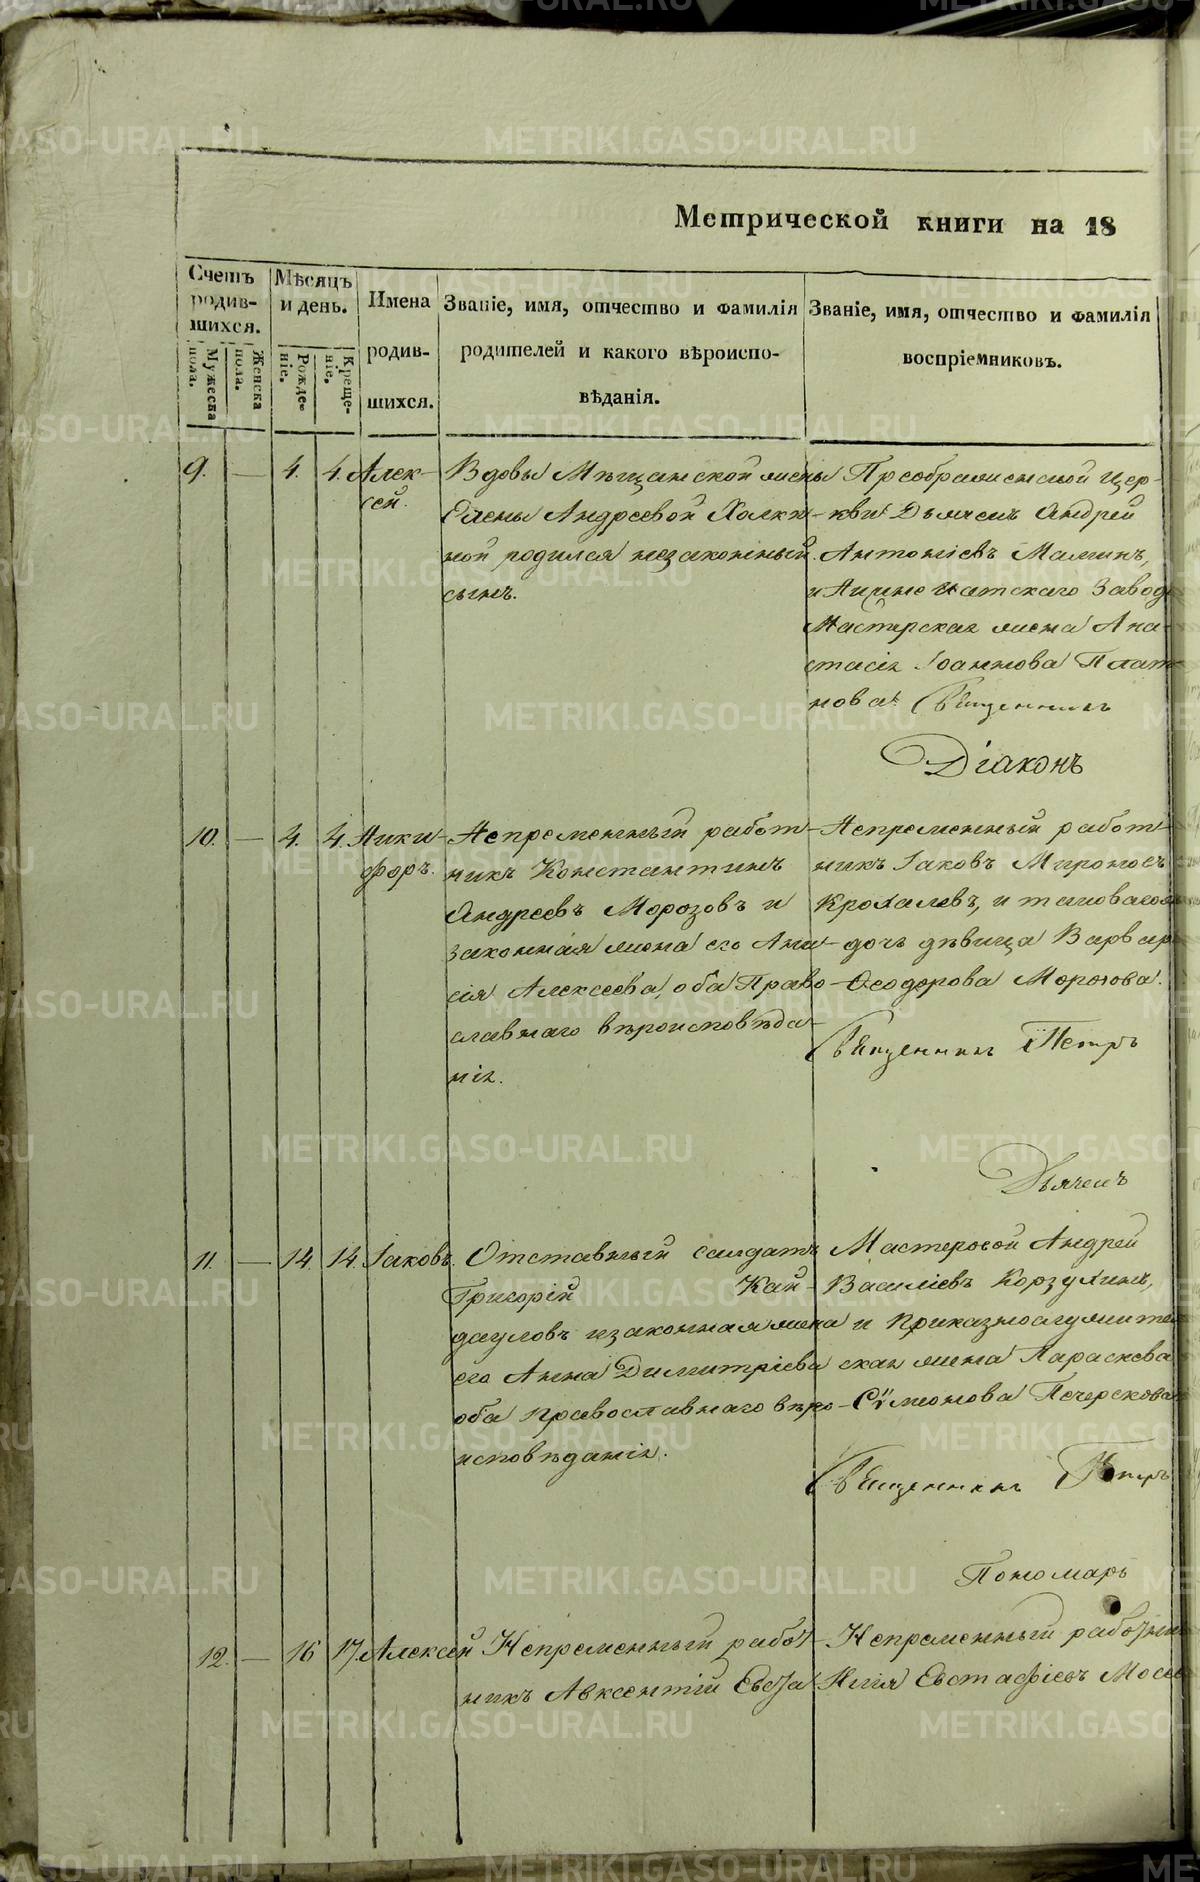 Метрической книги на 18
Счетъ родив-шихся.
Мужеска пола.
Женска пола.
Мѣсяцъ и день.
Рожде-ніе.
Креще-ніе.
Имена родив-шихся.
Званіе, имя, отчество и фамилія
родителей и какого вѣроиспо-
вѣданія.
Званіе, имя, отчество и фамилія
воспріемниковъ.
9. — 4. 4. Алек-
сей.
Вдовы Мѣщанской жены
Елены Андреевой Холки-
ной родился незаконный
сынъ.
Преображенской Цер-
кви Дьячекъ Андрей
Антоніевъ Маминъ,
Завод
Мастерская жена Ана-
стасія Іоаннова Плат
нова. Священникъ
Діаконъ
10. — 4. 4. Ники-
форъ.
Непременный работ-
никъ Константинъ
Андреевъ Морозовъ и
законная жена его Ани-
сія Алексеева, оба Право-
славнаго вѣроисповѣда-
нія.
Непременный работ-
никъ Іаковъ Мироновъ
Крохалевъ, и таковаго
дочь дѣвица Варвар
Ѳеодорова Морозова.
Священникъ Петръ
Дьячекъ
11. — 14. 14. Іаковъ.
Отставный солдатъ
Григорій Кай-
дауловъ и законная жена
его Анна Димитріева
оба православнаго вѣро-
исповѣданія.
Мастеровой Андрей
Василіевъ Корзухинъ,
и Приказнослужител
ская жена Параскева
Сѵмеонова Печерскова
Священникъ Петръ
Пономарь
12. — 16 17. Алексей
Непременный работ-
никъ Авксентій Евста
Непременный работни
Илія Евстафіевъ Мосе
METRIKI.GASO-URAL.RU